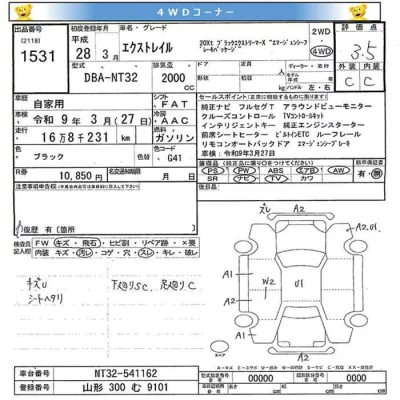 4WDコーナー
出品番号
[2118]
1531
初度登録年月
平成
28年3月
車名・グレード
エクストレイル
20Xt ブラックエクストリーマーX “エマージェンシーブレーキパッケージ”
2WD
・
4WD
評価点
3.5
外装 内装
C C
型式
DBA-NT32
排気量
2000
cc
モデル年式
ディーラー・並行
車歴
自家用
シフト
FAT
車検
令和 9年 3月(27日)
冷房
AAC
走行
16万8千231 km
燃料
ガソリン
色
ブラック
色コード
G41
R券
10,850円
名変期限
月 日
セールスポイント
純正ナビ フルセグT アラウンドビューモニター
クルーズコントロール TVコントロールキット
インテリジェントキー 純正エンジンスターター
前席シートヒーター ビルトインETC ルーフレール
リモコンオートバックドア エマージェンシーブレーキ
車検:令和9年3月27日
装備
PS PW ABS エアB AW
SR ナビ TV カワ
新車保証書
有・無
注意事項
修復歴 有[箇所
]
検査員記入欄
FW(キズ・飛石)・ヒビ割・リペア跡・×要
内装 キズ・汚レ・コゲ・穴・スレ・キレ・破レ
キズU
シートヘタリ
下廻りSC、足廻りC
ズレ
A2
A2,U1
A1
W2
U1
A1
A2
A2
スペア
車台番号
NT32-541162
山形 300 む 9101
型式指定番号
00000
類別区分番号
0000